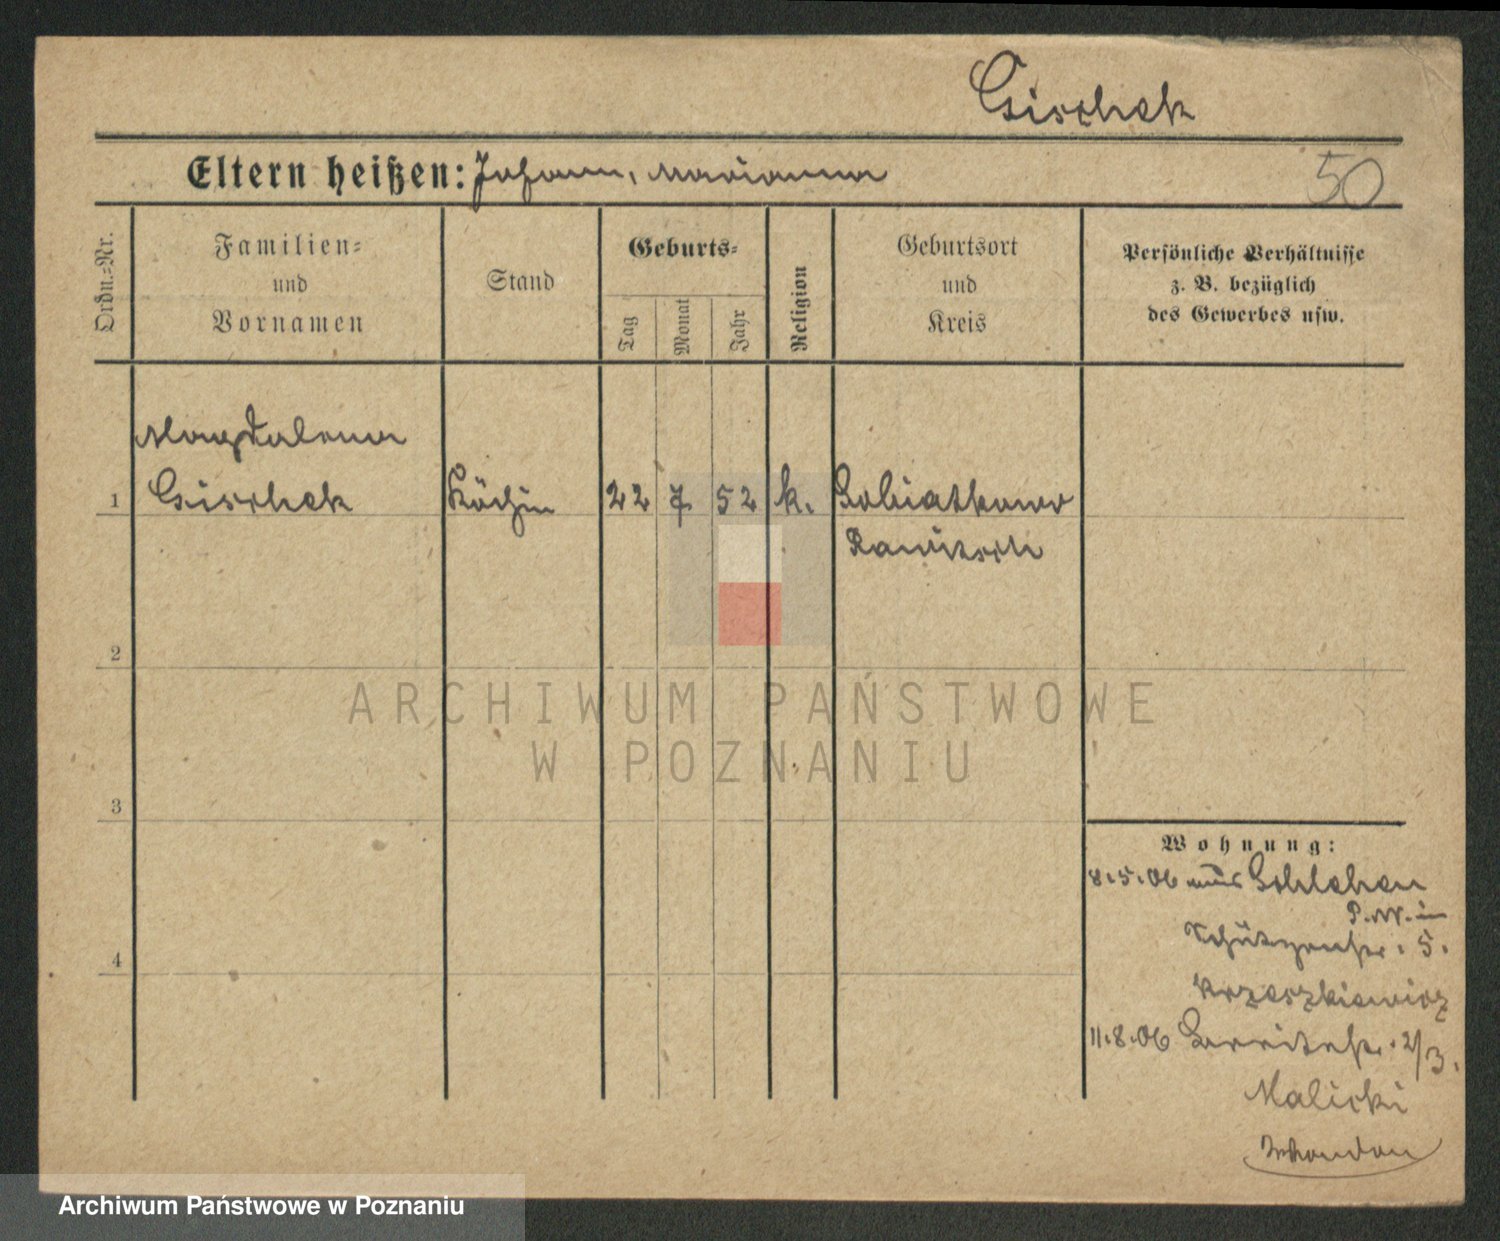 Gischek
Eltern heißen: Johann, Marianna
50
Ordn.=Nr.
Familien=
und
Vornamen
Stand
Geburts=
Tag
Monat
Jahr
Religion
Geburtsort
und
Kreis
Persönliche Verhältnisse
z. B. bezüglich
des Gewerbes usw.
Magdalena
1 Gischek Köchin 22 7 52 k. Sobiatkowo
Rawitsch
2
3
4
Wohnung:
8.5.06 aus Schlehen
P.W. in
Schützenstr. 5.
Krzeszkiewicz
11.8.06 2/3.
Malicki
ARCHIWUM PAŃSTWOWE
W POZNANIU
Archiwum Państwowe w Poznaniu